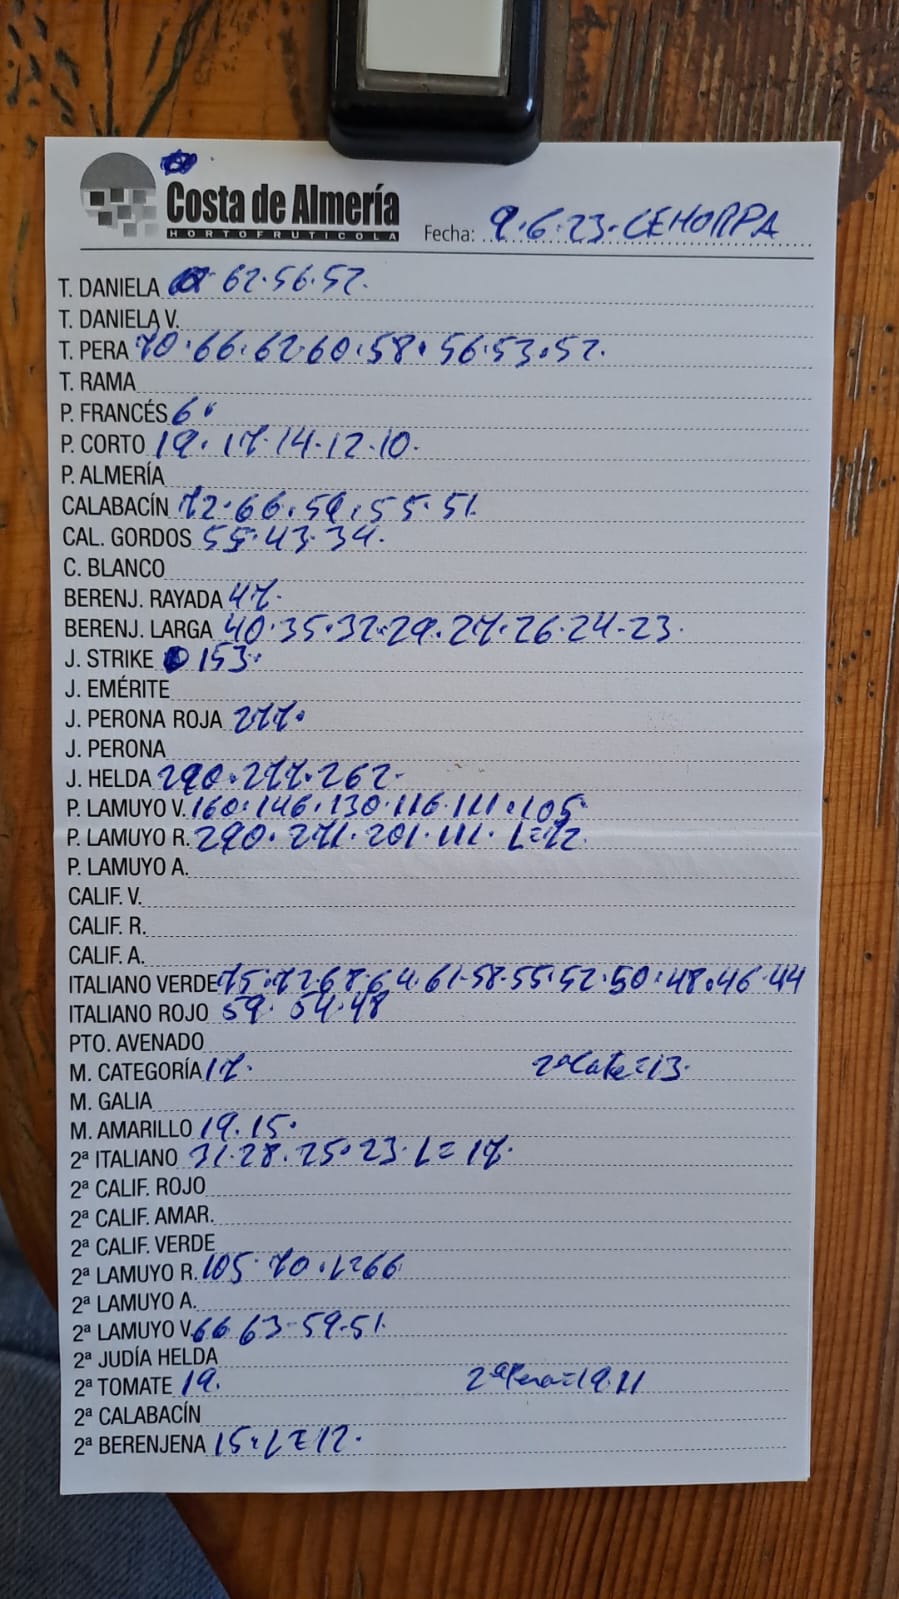 Costa de Almería
HORTOFRUTICOLA
Fecha: 9·6·23·CEHORPA
T. DANIELA 62·56·52·
T. DANIELA V.
T. PERA 70·66·62·60·58·56·53·52·
T. RAMA
P. FRANCÉS 6·
P. CORTO 19·17·14·12·10·
P. ALMERÍA
CALABACÍN 72·66·59·55·51·
CAL. GORDOS 55·43·34·
C. BLANCO
BERENJ. RAYADA 47·
BERENJ. LARGA 40·35·32·29·27·26·24·23·
J. STRIKE 153·
J. EMÉRITE
J. PERONA ROJA 277·
J. PERONA
J. HELDA 290·277·262·
P. LAMUYO V. 160·146·130·116·111·105·
P. LAMUYO R. 290·271·201·111·L=72·
P. LAMUYO A.
CALIF. V.
CALIF. R.
CALIF. A.
ITALIANO VERDE 75·72·68·64·61·58·55·52·50·48·46·44
ITALIANO ROJO 59·54·48
PTO. AVENADO
M. CATEGORÍA 17· 2ªCate=13·
M. GALIA
M. AMARILLO 19·15·
2ª ITALIANO 31·28·25·23·L=17·
2ª CALIF. ROJO
2ª CALIF. AMAR.
2ª CALIF. VERDE
2ª LAMUYO R. 105·70·L=66
2ª LAMUYO A.
2ª LAMUYO V. 66 63·59·51·
2ª JUDÍA HELDA
2ª TOMATE 19· 2ªPera=19·11
2ª CALABACÍN
2ª BERENJENA 15·L=12·